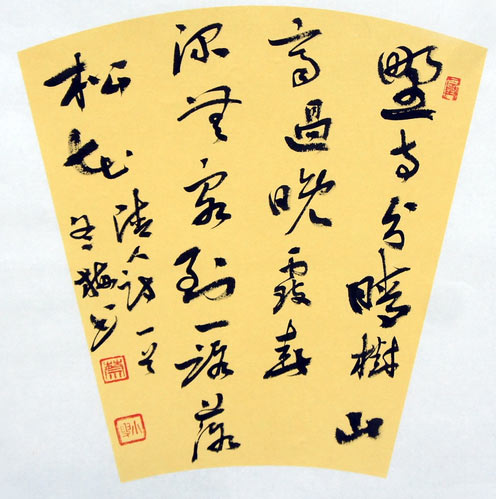 野寺分晴樹山
亭過晚霞春
深無客到一路落
松花
清人詩一首
冬梅书